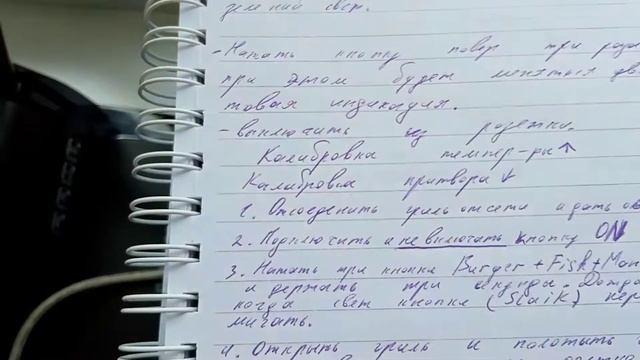 зеленый свет.
- Нажать кнопку повер три раза
при этом будет менятся
товая индикация.
- выключить из розетки.
Калибровка темпер-ры ↑
Калибровка притвора ↓
1. Отсоеденить гриль от сети и дать
2. Подключить и не включать кнопку ON
3. Нажать три кнопки Burger + Fish +
и держать три секунды.
когда свет кнопке (Staik)
мигать.
4. Открыть гриль и положить